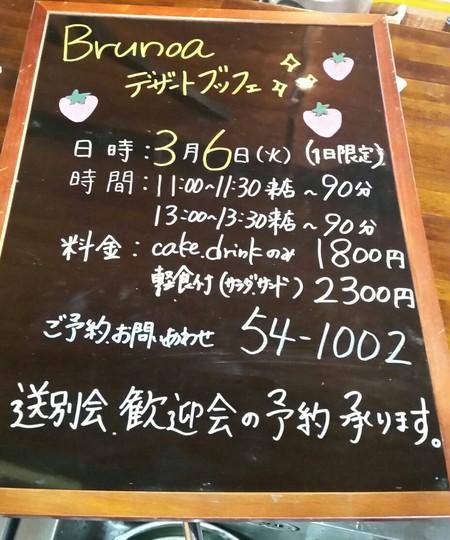 Brunoa
デザートブッフェ
日時：3月6日(火) (1日限定)
時間：11:00〜11:30来店〜90分
13:00〜13:30来店〜90分
料金：cake.drinkのみ 1800円
軽食付(サラダ、サンド) 2300円
ご予約、お問いあわせ 54-1002
送別会、歓迎会の予約承ります。